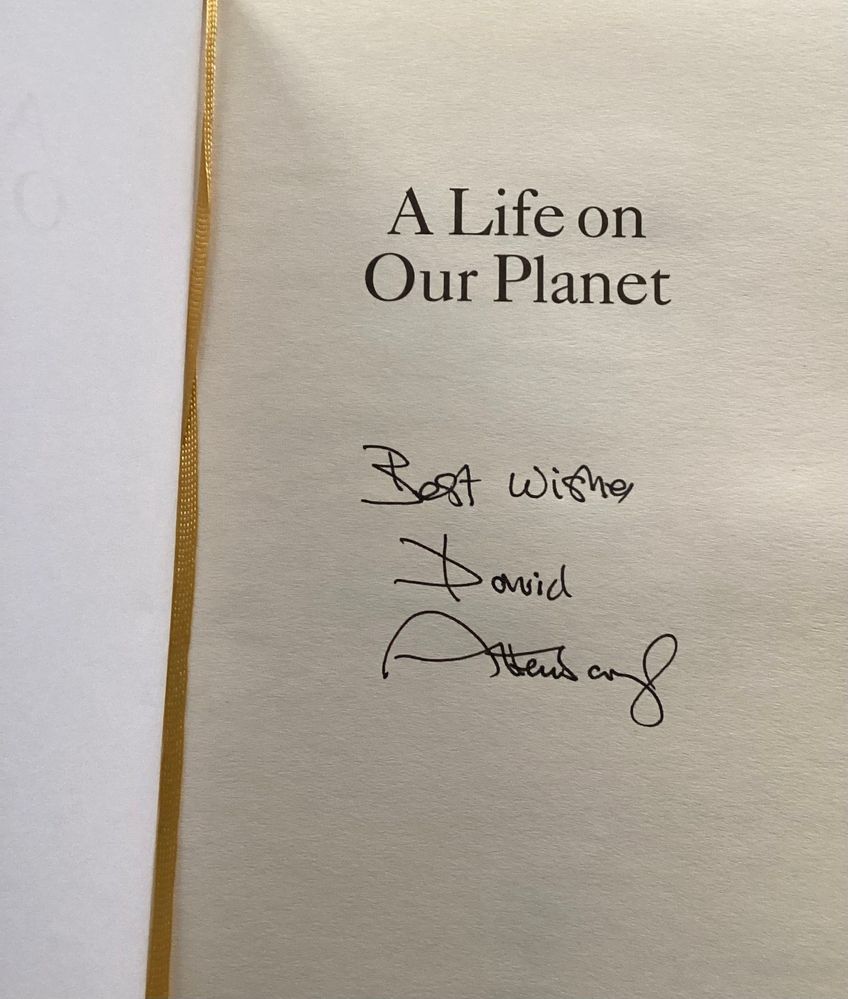 A Life on
Our Planet
Best Wishes
David
Attenborough